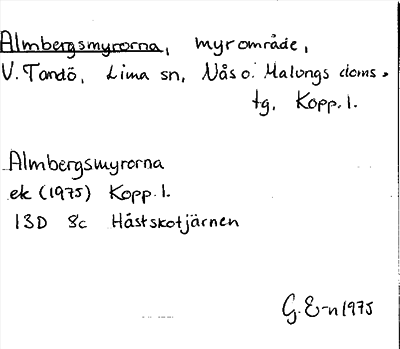 Almbergsmyrorna, myrområde,
V. Tandö, Lima sn, Nås o. Malungs doms-
tg, Kopp. l.
Almbergsmyrorna
ek (1975) Kopp. l.
13D 8c Hästskotjärnen
G. E-n 1975